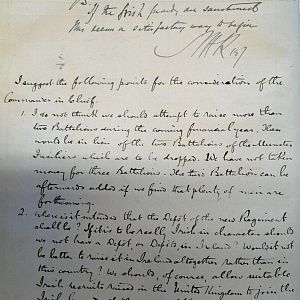 If the Irish Guards are sanctioned
this seems a satisfactory way to begin
I suggest the following points for the consideration of the
Commander in Chief.
1. I do not think we should attempt to raise more than
two Battalions during the coming financial year. These
would be in lieu of the two Battalions of the Munster
Fusiliers which are to be dropped. We have not taken
money for three Battalions. The third Battalion can be
afterwards added if we find that plenty of men are
forthcoming.
2. Where is it intended that the Depot of the new Regiment
shall be? If it is to be really Irish in character should
we not have a Depot, or Depots, in Ireland? Would it not
be better to raise it in Ireland altogether rather than in
this country? We should, of course, allow suitable
Irish recruits raised in the United Kingdom to join the